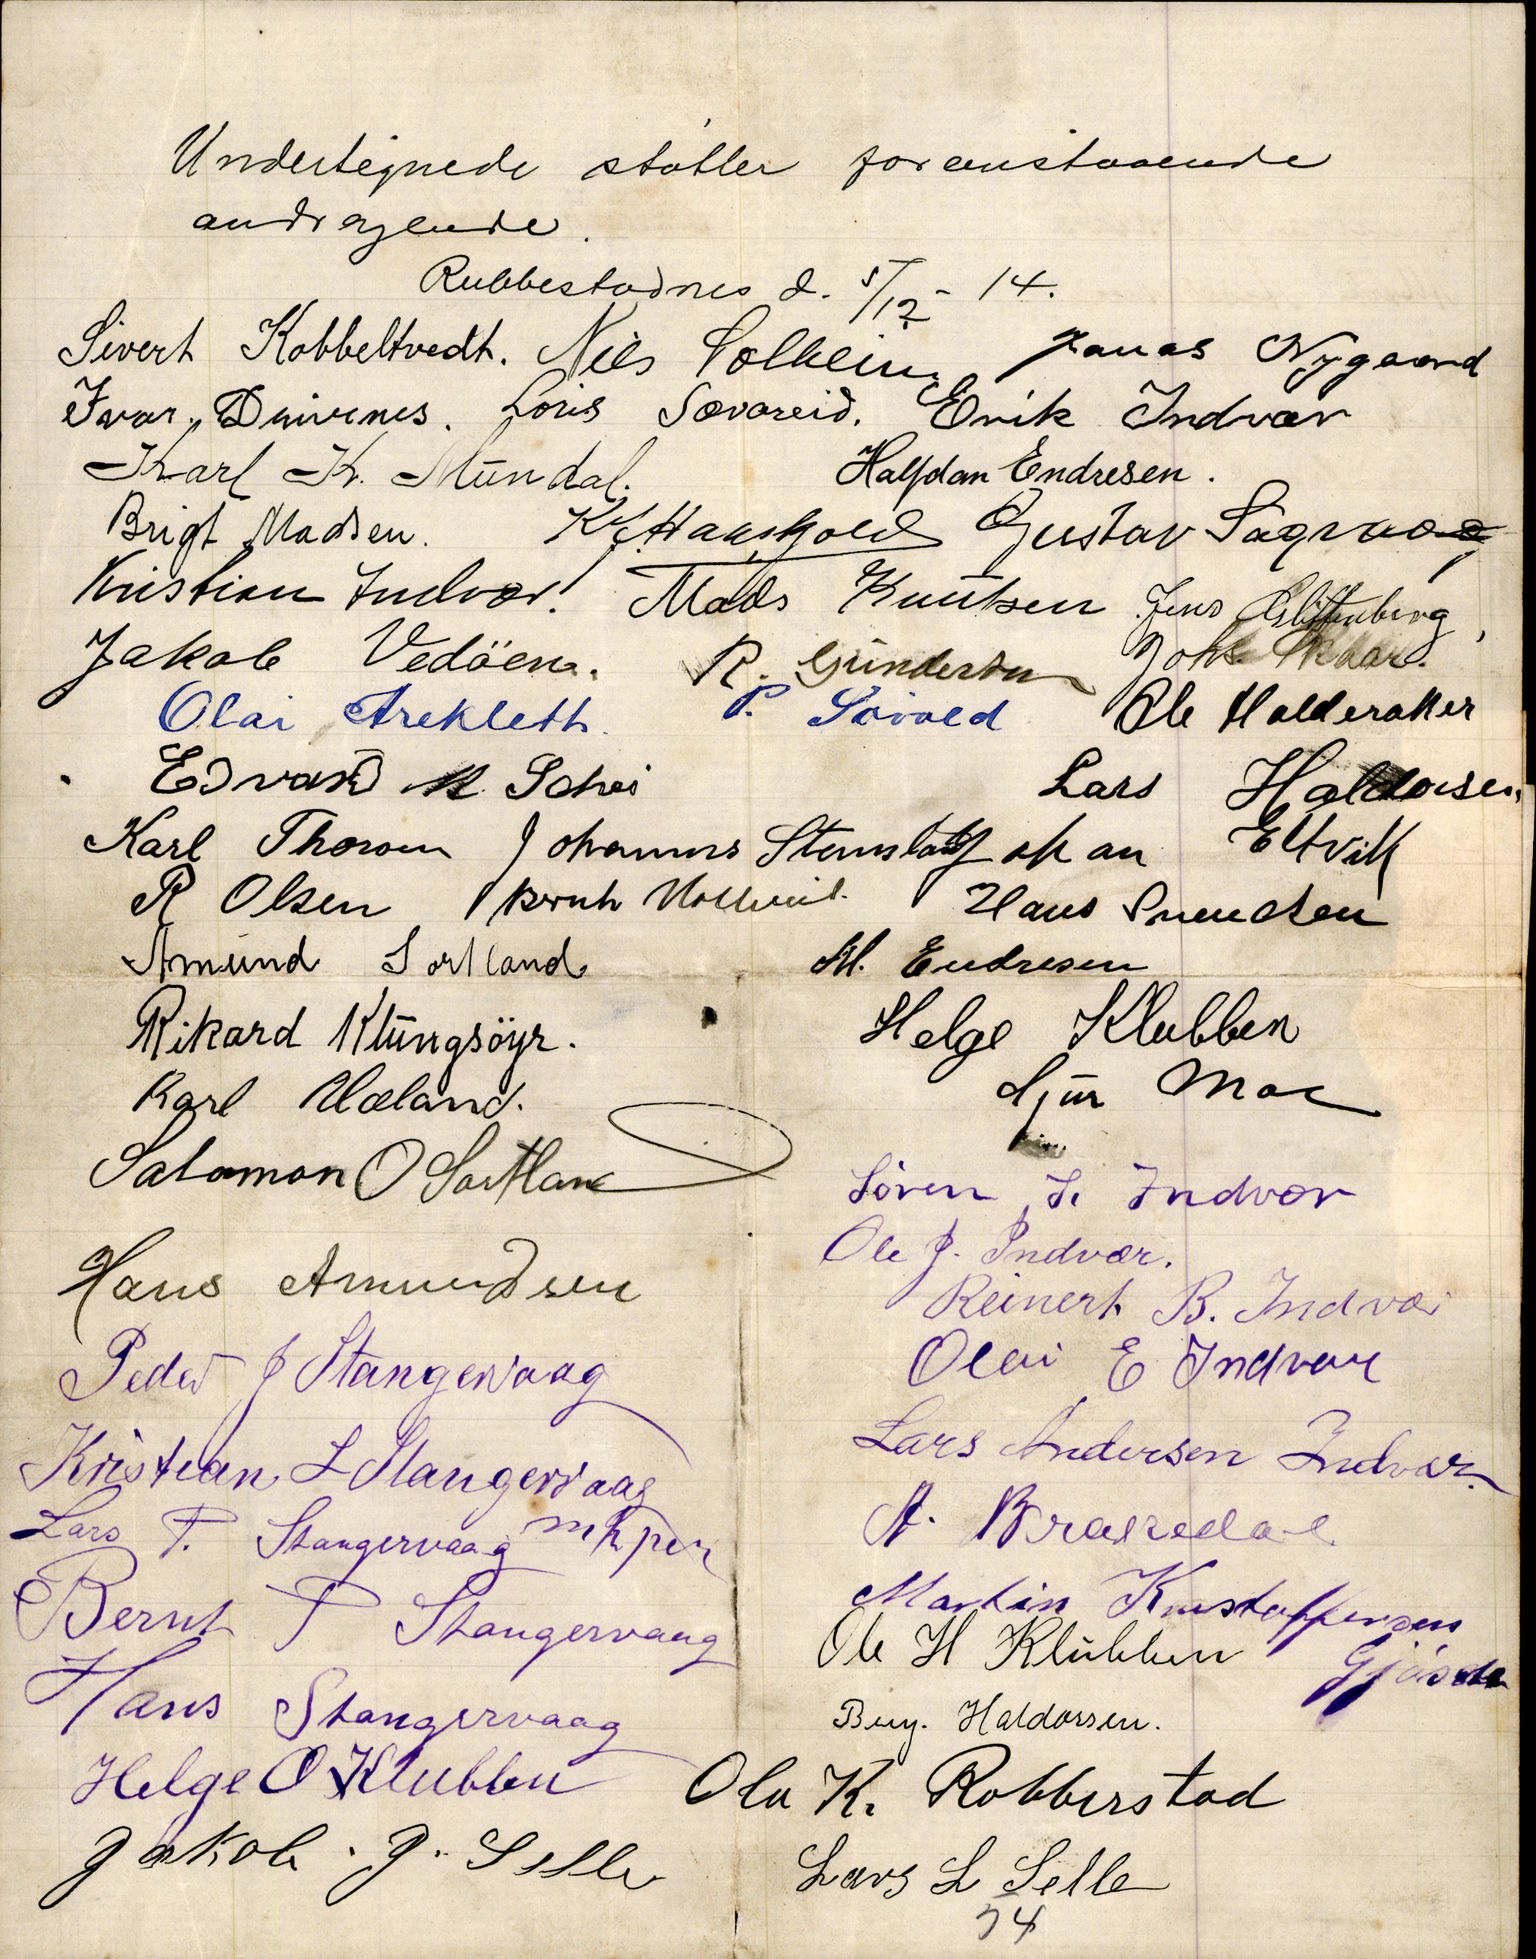 Undertegnede støtter foranstaaende
andragende.
Rubbestadnes d. 5/12 - 14.
Sivert Kobbeltvedt. Nils Solheim Jonas Nygaard
Ivar Drivenes. Sævareid. Erik Indvær
Karl K. Mundal. Halfdan Endresen.
Brigt Madsen. Gustav Sagvaag
Kristian Indvær. Mads Knutsen Jens
Jakob Vedöen. R. Gundersen Johs. Skaar.
Olai P. Ole Halderaker
Edvard M. Lars Haldorsen
Karl Johannes Johan Eltvik
R Olsen Hans Svendsen
Amund Sortland M. Endresen
Rikard Klungsöyr. Helge Klubben
Karl Sjur Moe
Salomon O Sortland
Søren Indvær
Ole J. Indvær.
Hans Amundsen
Reinert B. Indvær
Peder J Stangervaag
Olai E Indvær
Kristian L Stangervaag
Lars Andersen Indvær.
Lars T. Stangervaag m h pen
A.
Bernt T Stangervaag
Martin Kristoffersen
Ole H Klubben
Hans Stangervaag
Haldorsen.
Helge O Klubben Ola K. Robberstad
Jakob. J. Selle Lars L Selle
54